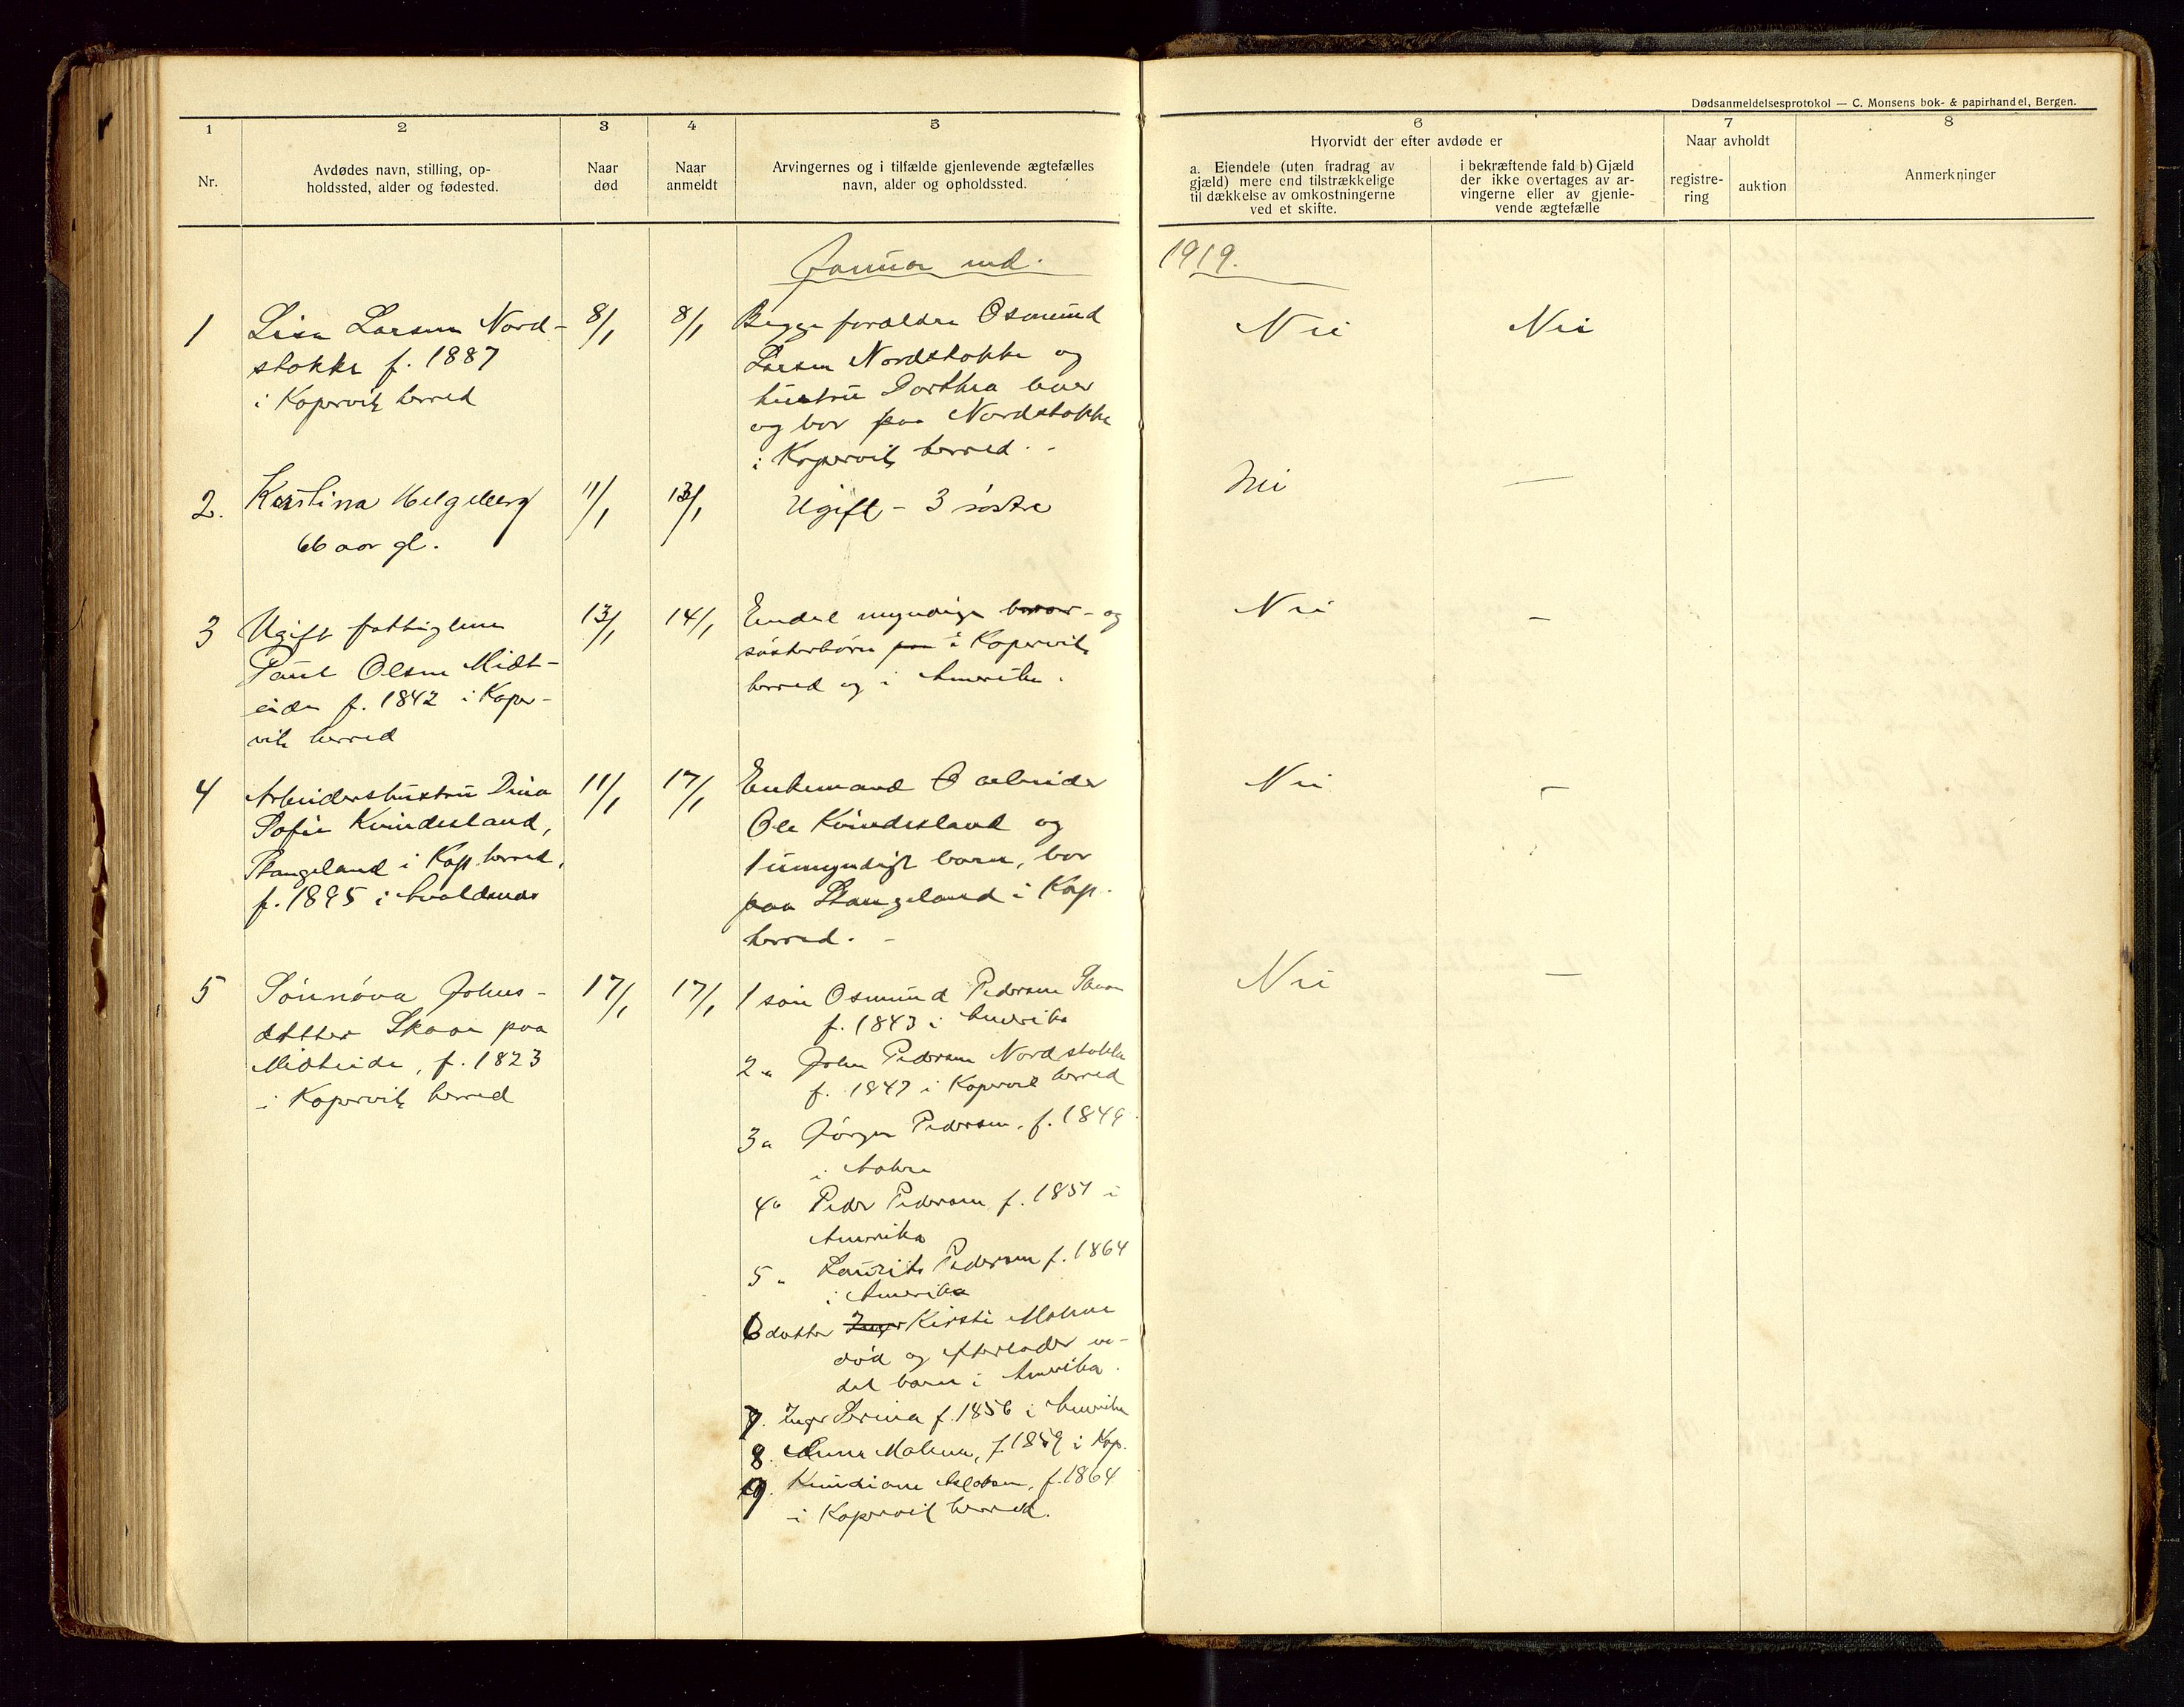 Dødsanmeldelsesprotokol — C. Monsens bok- & papirhandel, Bergen.
1 2 3 4 5 6 7 8
Nr.
Avdødes navn, stilling, op-
holdssted, alder og fødested.
Naar
død
Naar
anmeldt
Arvingernes og i tilfælde gjenlevende ægtefælles
navn, alder og opholdssted.
Hvorvidt der efter avdøde er
a. Eiendele (uten fradrag av
gjæld) mere end tilstrækkelige
til dækkelse av omkostningerne
ved et skifte.
i bekræftende fald b) Gjæld
der ikke overtages av ar-
vingerne eller av gjenle-
vende ægtefælle
Naar avholdt
registre-
ring
auktion
Anmerkninger
Januar md. 1919.
1
Lisa Larsen Nord-
stokke f. 1887
i Kopervik herred
8/1
8/1
Begge forældre Osmund
Larsen Nordstokke og
hustru Dorthea lever
og bor paa Nordstokke
i Kopervik herred. -
Nei
Nei
2.
Kristina Helgeberg
66 aar gl.
11/1
13/1
Ugift - 3 søstre
Nei
—
3
Ugift fattiglem
Paul Olsen Midt-
eide f. 1842 i Koper-
vik herred
13/1
14/1
Endel myndige - og
søsterbørn paa i Kopervik
herred og i Amerika.
Nei
–
4
Arbeidershustru Dina
Sofie Kvindesland,
Stangeland i Kop. herred,
f. 1895 i Avaldsnes
11/1
17/1
Enkemand arbeider
Ole Kvindesland og
1 umyndigt barn, bor
paa Stangeland i Kop.
herred. -
Nei
–
5
Sønnøva Johns-
datter Skaar paa
Midteide, f. 1823
i Kopervik herred
17/1
17/1
1 søn Osmund Pedersen Skaar
f. 1843 i Amerika
2 " John Pedersen Nordstokke
f. 1847 i Kopervik herred
3 " Jørgen Pedersen, f. 1849
i Aakre
4 " Peder Pedersen f. 1851 i
Amerika
5 " Laurits Pedersen f. 1864
i Amerika
6 datter Inger Kirsti Malene
død og efterlader en-
del barn i Amerika.
7. Inger Serina f. 1856 i Amerika
8. Anne Malene, f. 1859 i Kop.
9. Jacobsen, f. 1864
i Kopervik herred.
Nei
—